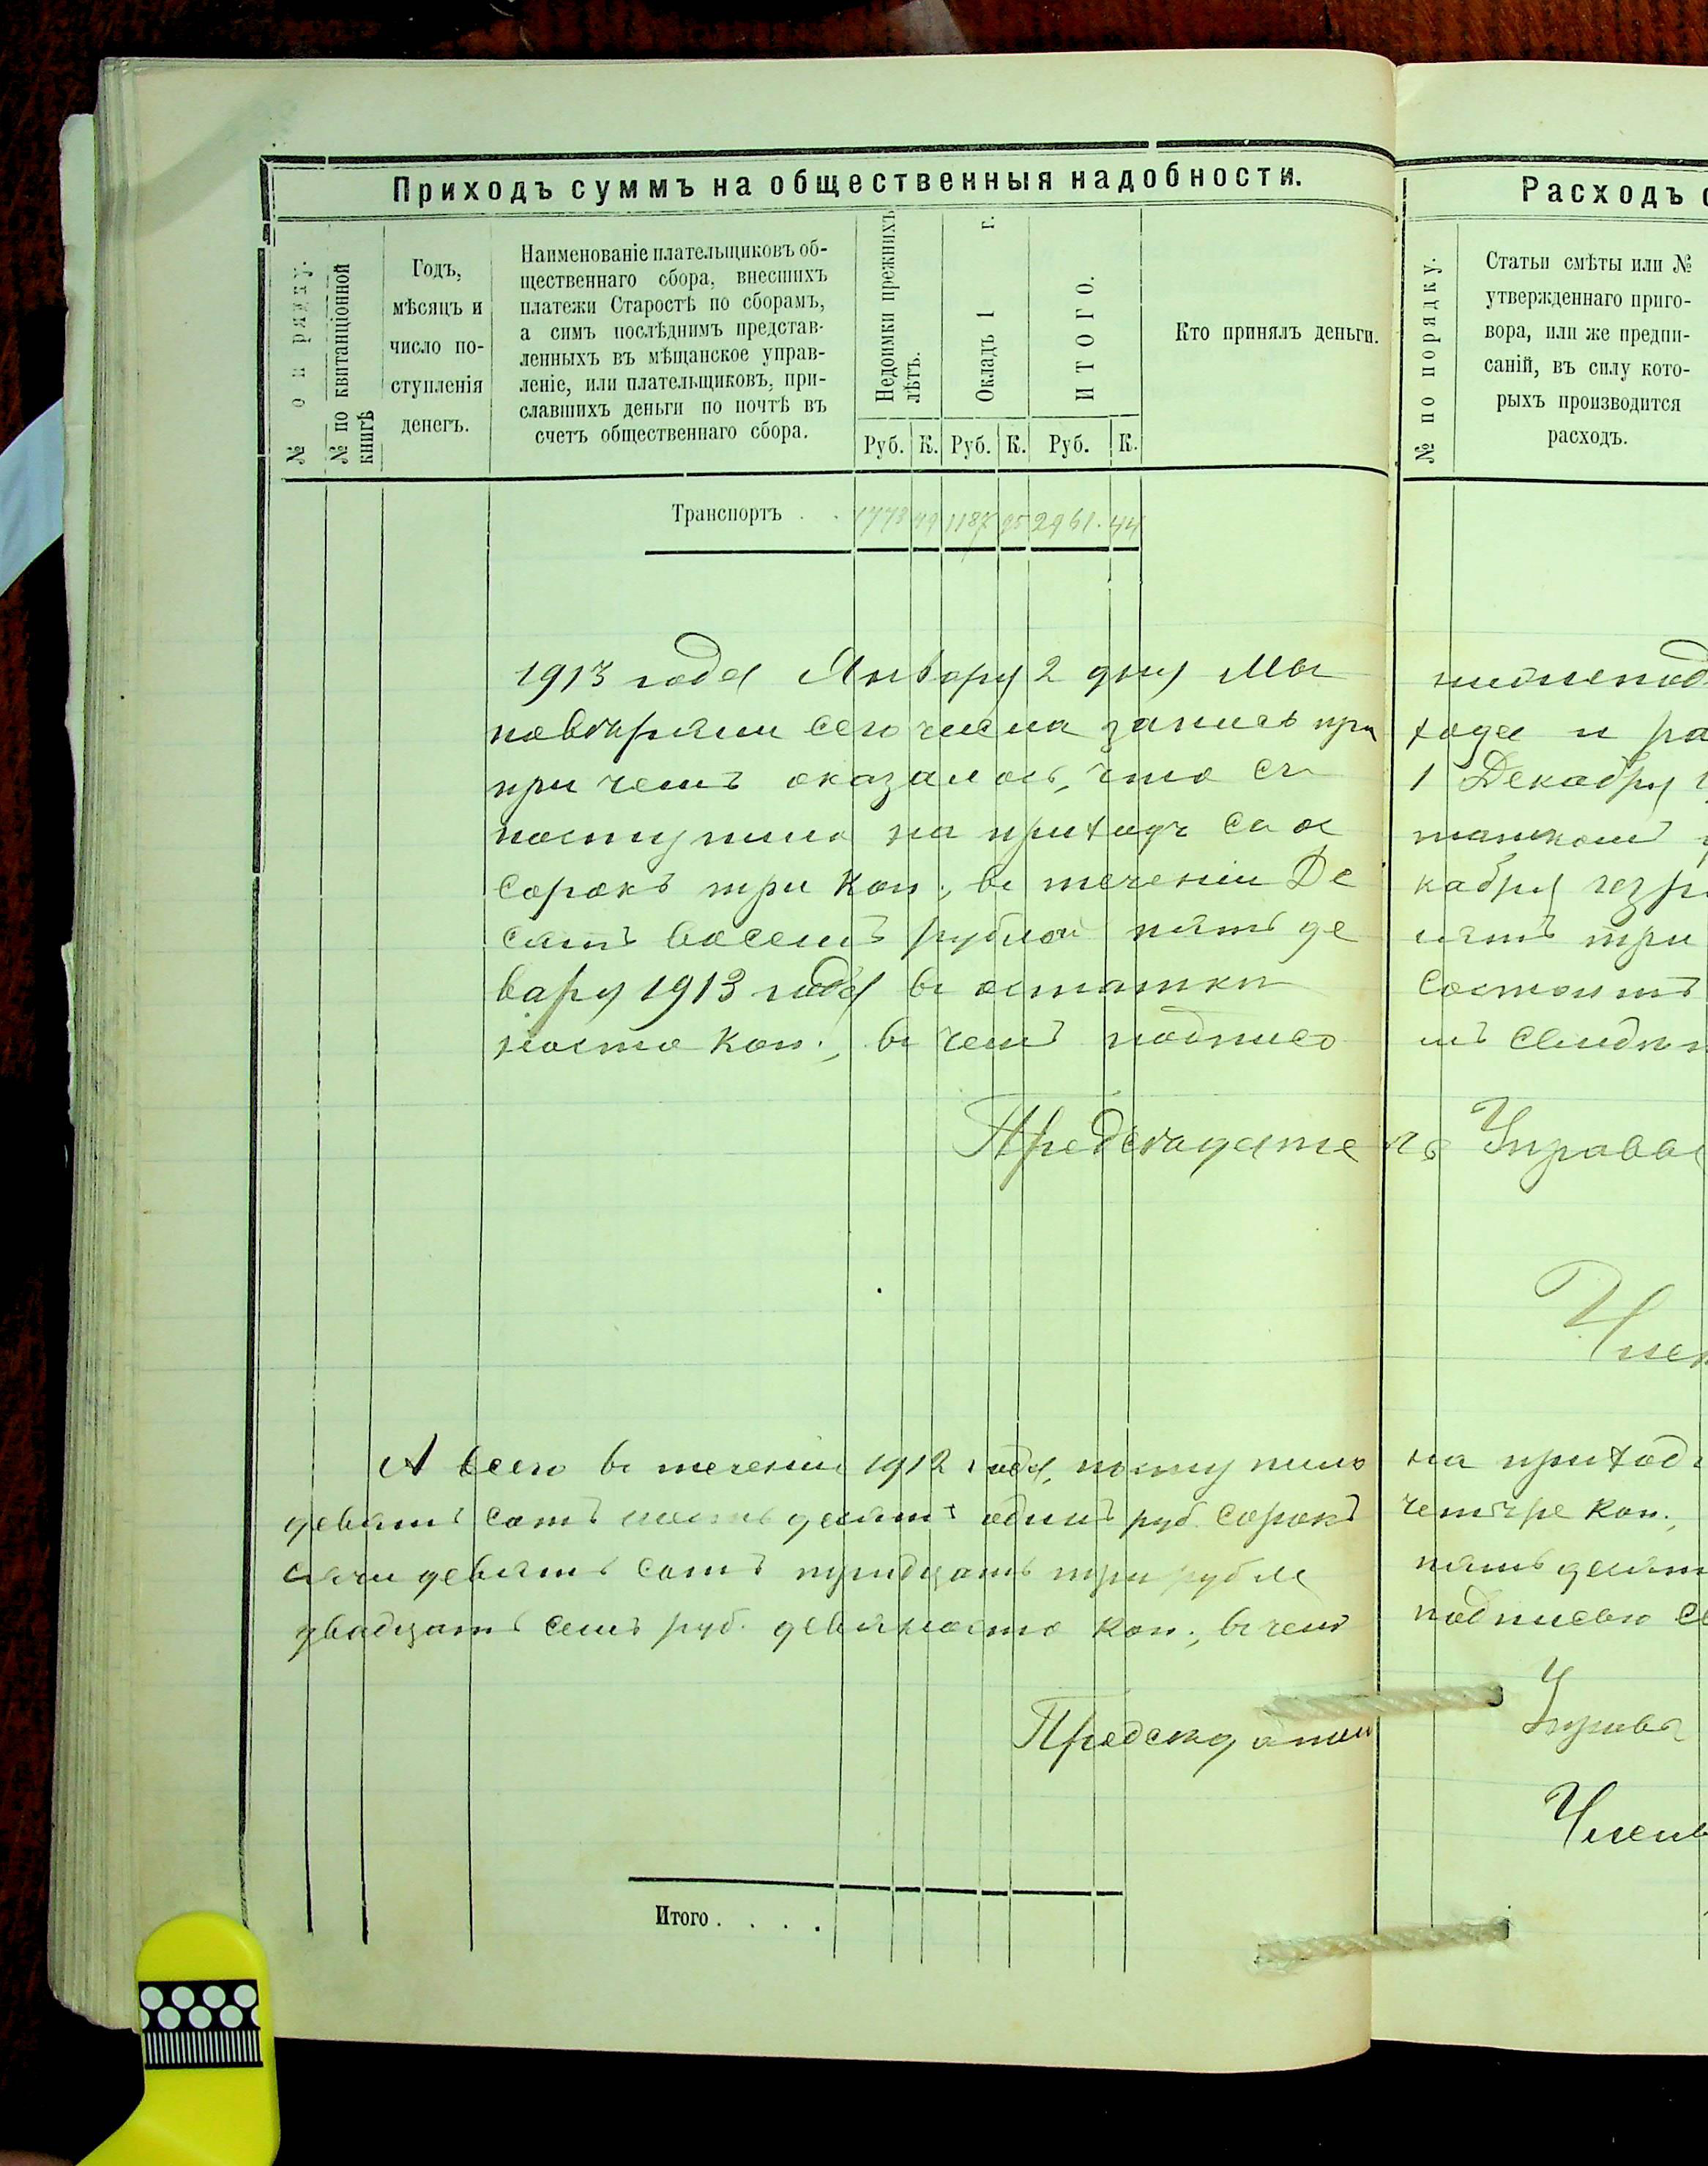 Приходъ суммъ на общественныя надобности.
№ по рядку.
№ по квитанціонной
книгѣ
Годъ,
мѣсяцъ и
число по-
ступленія
денегъ.
Наименованіе плательщиковъ об-
щественнаго сбора, внесшихъ
платежи Старостѣ по сборамъ,
а симъ послѣднимъ представ-
ленныхъ въ мѣщанское управ-
леніе, или плательщиковъ, при-
славшихъ деньги по почтѣ въ
счетъ общественнаго сбора.
Недоимки прежнихъ
лѣтъ.
Окладъ 1 г.
ИТОГО.
Руб. К. Руб. К. Руб. К.
Кто принялъ деньги.
Транспортъ . . 2961. 44
1913 года Января 2 дня Мы
повѣряли сего числа запись при
при чемъ оказалось, что съ
поступило на приходъ
сорокъ три коп., въ теченіи Де
сятъ восемь рублей пять де
варя 1913 года въ остатки
носто коп., въ чемъ подписо
Предсѣдате
А всего въ теченіи 1912 года, поступило
девять сотъ шесть десятъ одинъ руб. сорокъ
сячи девять сотъ тридцать три рубля
двадцать семь руб. девяносто коп., въ чемъ
Предсѣдатель
Итого . . . .
Расходъ с
№ по порядку.
Статьи смѣты или №
утвержденнаго приго-
вора, или же предпи-
саній, въ силу кото-
рыхъ производится
расходъ.
нижепод
хода и ра
1 Декабря
кабря
лять три
Состоитъ
ль Управы
Член
на приход
четыре коп.,
пять десят
подписью с
Управы
Члены